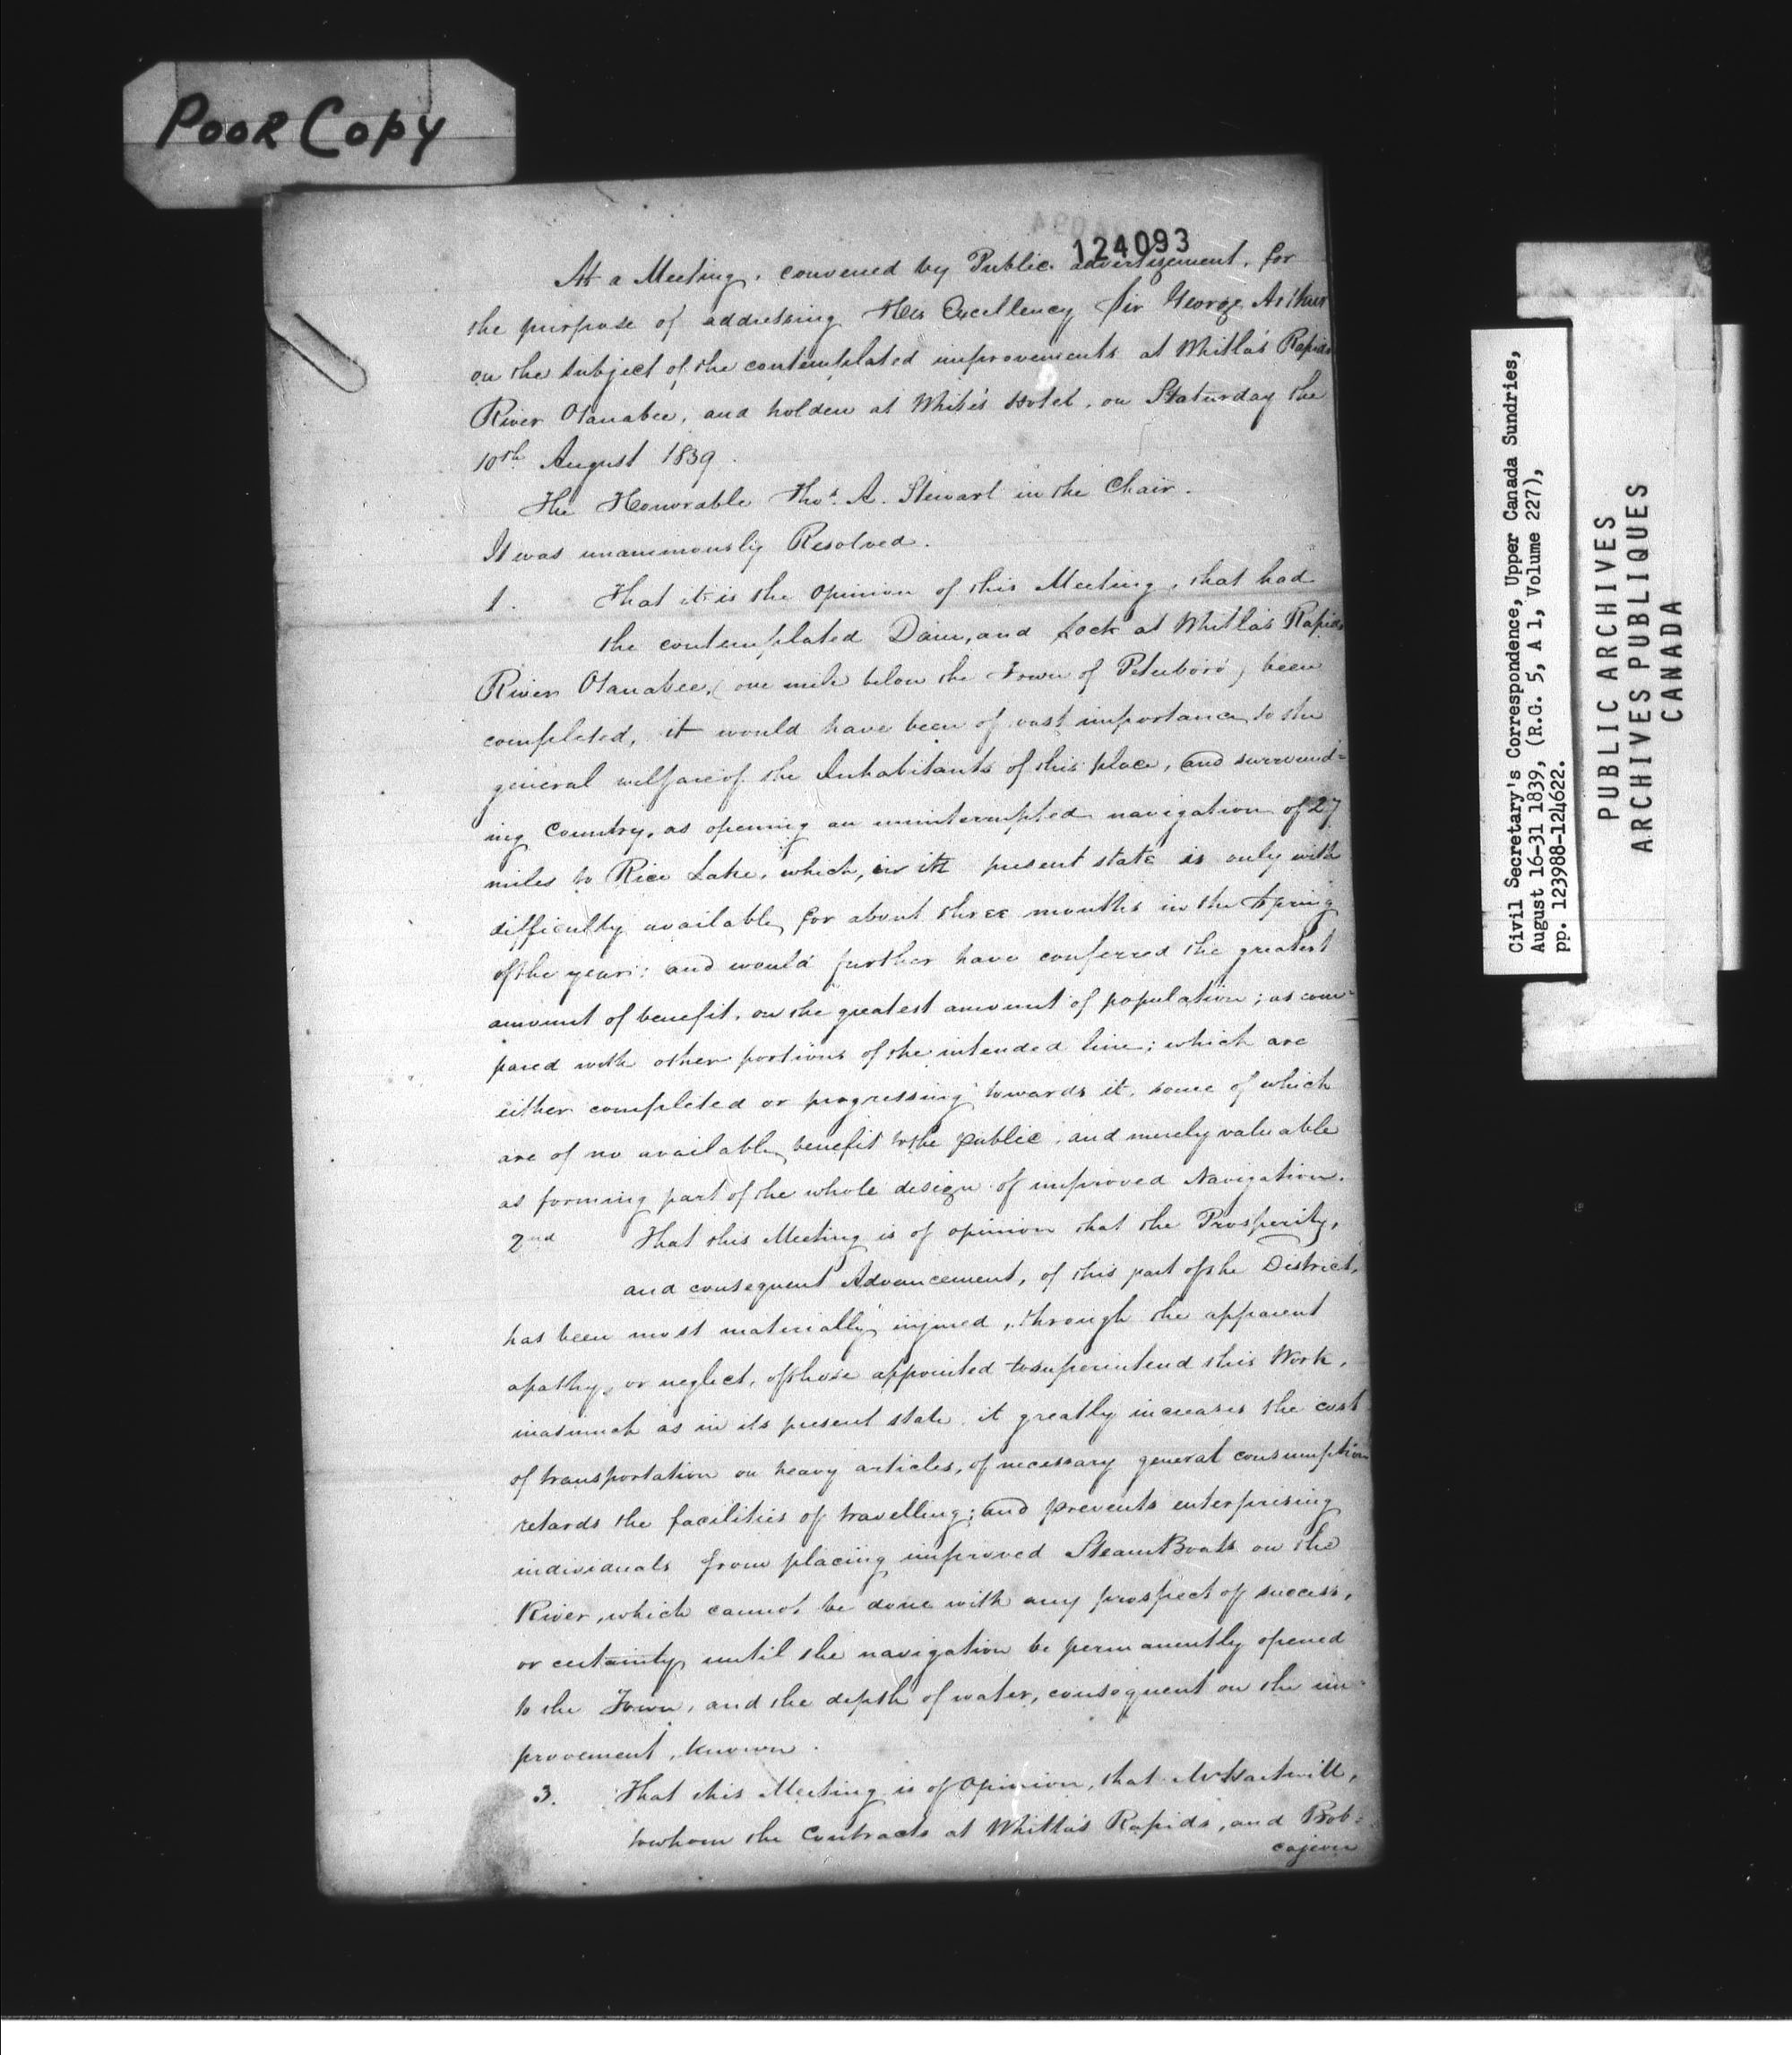 POOR COPY
124093
At a Meeting, convened by Public advertizement, for
the purpose of addressing His Excellency Sir George Arthur
on the subject of the contemplated improvements at Whitla's Rapids
River Otanabee, and holden at White's Hotel, on Staturday the
10th August 1839.
The Honorable Thos. A. Stewart in the Chair.
It was unanimously Resolved.
1. That it is the Opinion of this Meeting, that had
the contemplated Dam, and Lock at Whitla's Rapids
River Otanabee, (one mile below the Town of Peterboro') been
completed, it would have been of vast importance to the
general welfare of the Inhabitants of this place, and surround=
ing Country, as opening an uninterrupted navigation of 27
miles to Rice Lake, which, in its present state is only with
difficulty available for about three months in the Spring
of the year: and would further have conferred the greatest
amount of benefit, on the greatest amount of population; as com=
pared with other portions of the intended line; which are
either completed or progressing towards it, some of which
are of no available benefit to the public, and merely valuable
as forming part of the whole design of improved Navigation.
2nd That this Meeting is of opinion that the Prosperity,
and consequent Advancement, of this part of the District,
has been most materially injured, through the apparent
apathy, or neglect, of those appointed to superintend this Work,
inasmuch as in its present state it greatly increases the cost
of transportation on heavy articles, of necessary general consumption
retards the facilities of travelling; and prevents enterprising
individuals from placing improved Steam Boats on the
River, which cannot be done with any prospect of success,
or certainty until the navigation be permanently opened
to the Town, and the depth of water, consequent on the im=
provement, known.
3. That this Meeting is of Opinion, that Mr Hartwill,
to whom the Contracts at Whitla's Rapids, and Bob=
cajeun
Civil Secretary's Correspondence, Upper Canada Sundries,
August 16-31 1839, (R.G. 5, A 1, Volume 227),
pp. 123988-124622.
PUBLIC ARCHIVES
ARCHIVES PUBLIQUES
CANADA